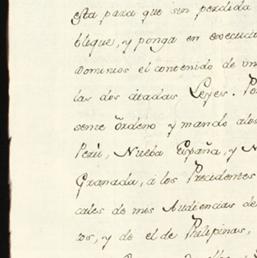 esta para que sin perdida
bleque, y ponga en execucio
Dominios el contenido de un
las dos citadas Leyes. Po
sente Ordeno y mando alos
Perù, Nueba España, y N
Granada, a los Presidentes
cales de mis Audiencias de
os, y de el de Philipinas,